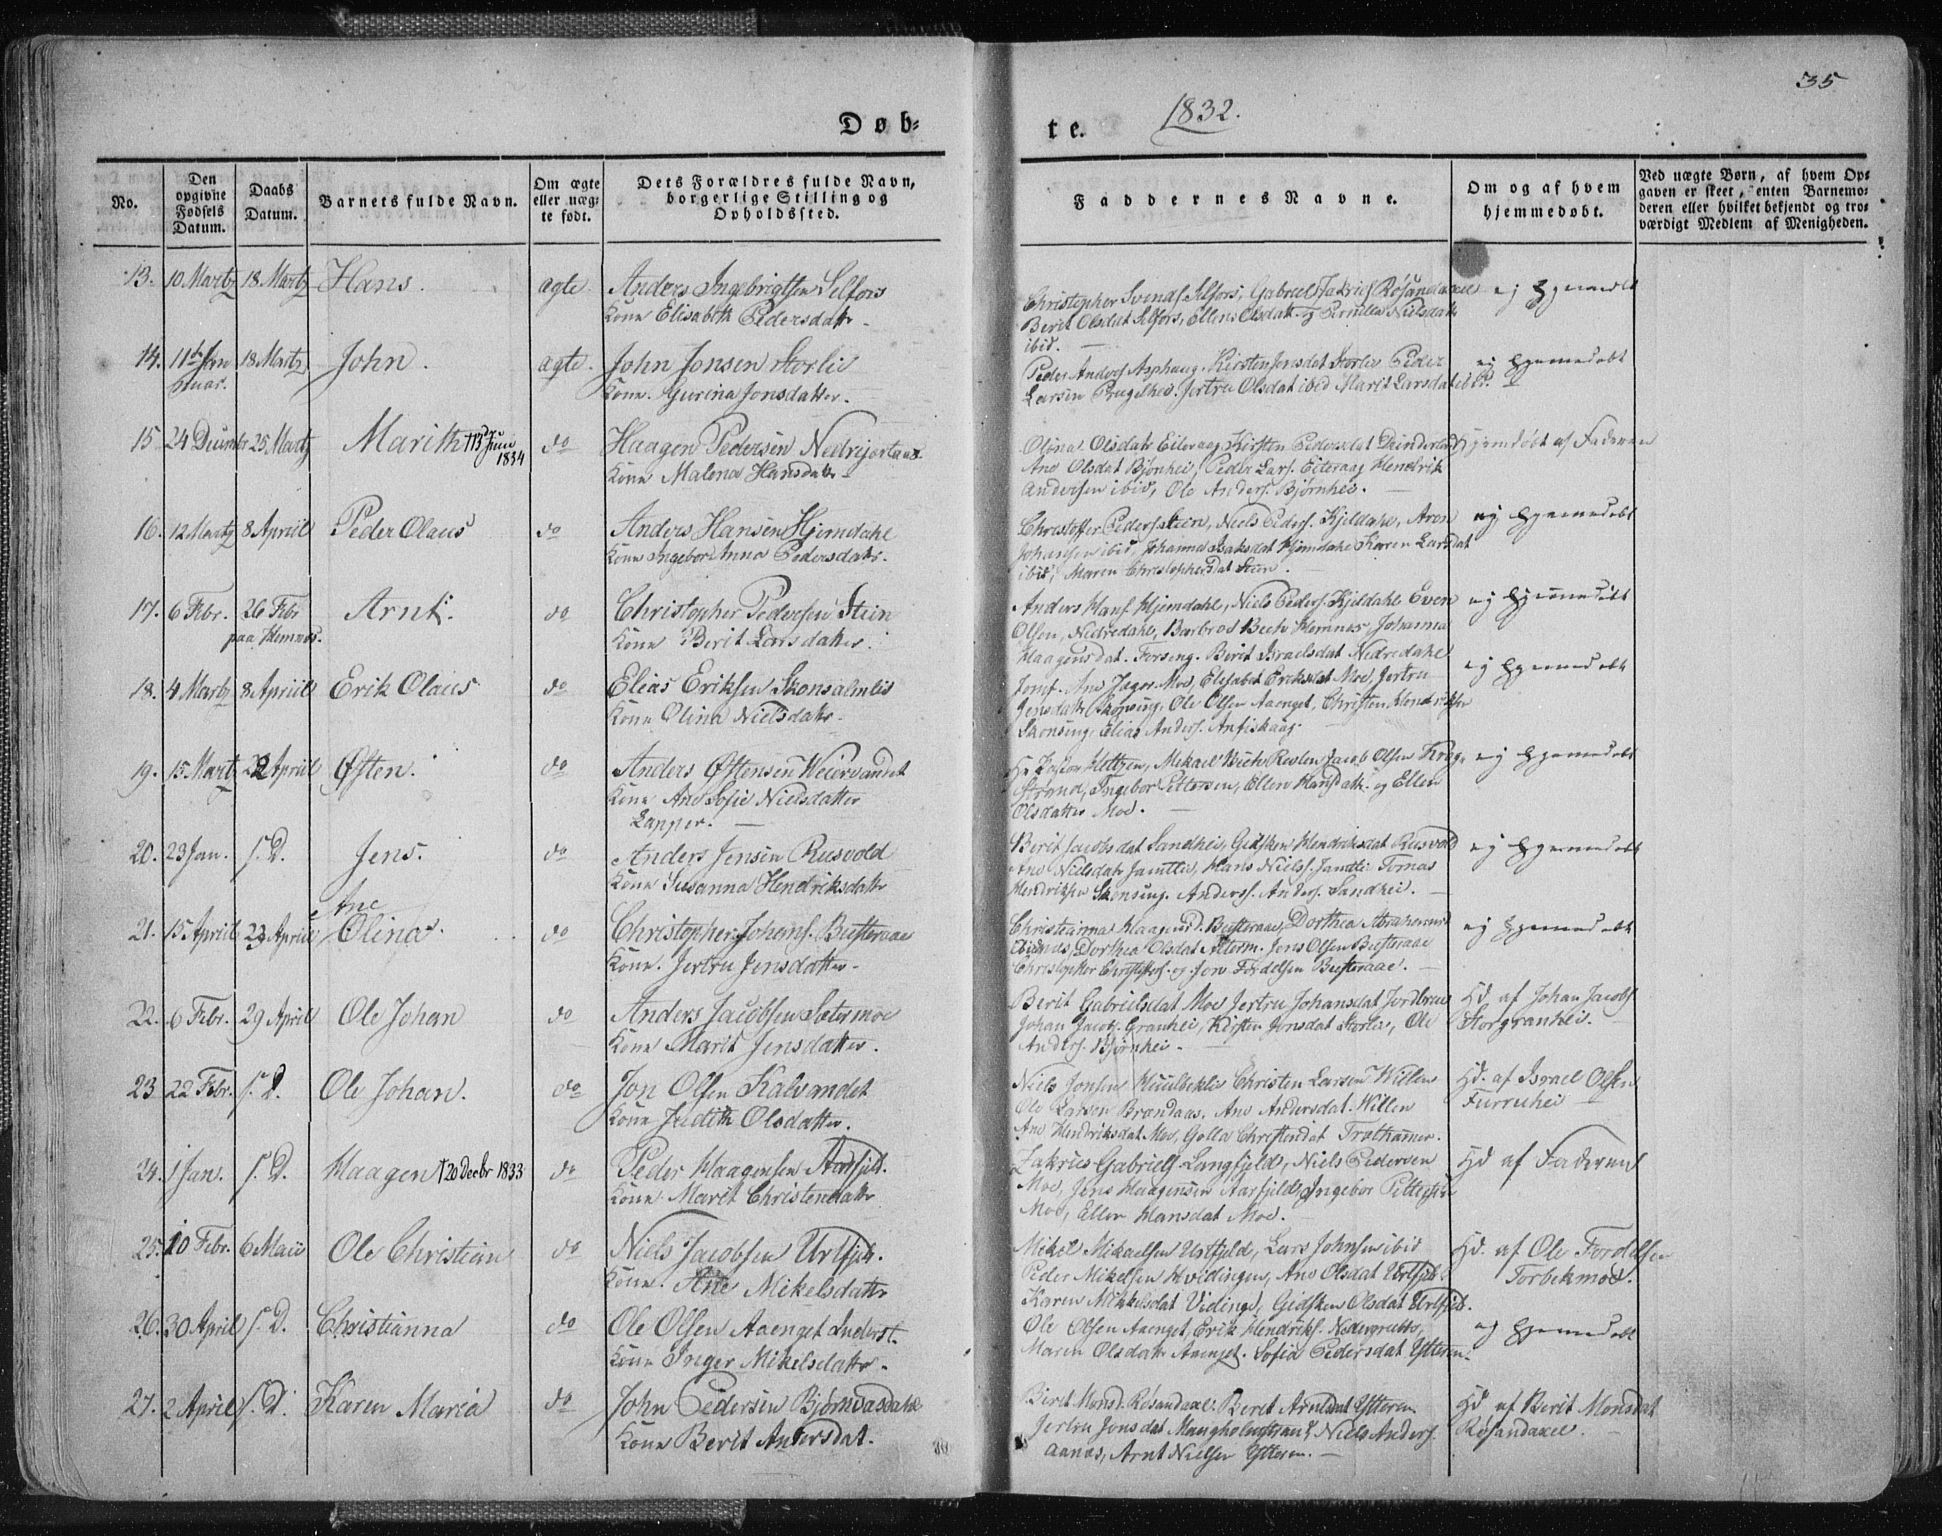 35
1832.
Døb-
te.
No.
Den opgivne Fødsels Datum.
Daabs Datum.
Barnets fulde Navn.
Om ægte eller uægte født.
Dets Forældres fulde Navn, borgerlige Stilling og Opholdssted.
Faddernes Navne.
Om og af hvem hjemmedøbt.
Ved uægte Børn, af hvem Opgaven er skeet, enten Barnemoderen eller hvilket bekjendt og troværdigt Medlem af Menigheden.
13. 10 Martz 18 Martz Hans. ægte. Anders Ingebrigtsen Selfors
Kone Elisabeth Pedersdatr.
Christopher Svends. Selfors, Gabriel Zakrias. Røsandaxel
Berit Olsdat Selfors, Ellen Olsdatr og Pernilla Nielsdatr
ibid.
ej hjemmedøbt
14. 11te Januar. 18 Martz John. ægte. John Jonsen Storlie
Kone. Gurina Jonsdatter.
Peder Anders. Asphaug. Kirsten Jonsdat Storlie Peder
Larsen Prugelhei. Jertru Olsdat ibid Marit Larsdat ibid.
ej hjemmedøbt
15 24 Decembr 25 Martz Marith † 13 Juni 1834 do Haagen Pedersen Nedrijertaas
Kone Malena Hansdatr
Olina Olsdatr Eiteraag Kirsten Pedersdat Dunderland
Ane Olsdat Bjørnhei, Peder Lars. Eiteraag Hendrik
Andersen ibid, Ole Anders. Bjørnhei.
Hjemdøbt af Faderen
16. 12 Martz 8 Apriil Peder Olaus do Anders Hansen Hjemdahl
Kone Ingebor Anna Pedersdatr.
Christoffer Peders. Stein, Niels Peders. Kjeldahl, Aron
Johansen ibid, Johanna Isaksdat Hjemdahl Karen Larsdat
ibid, Maren Christophersdat Steen.
ej hjemmedøbt
17. 6 Febr. 26 Febr paa Hemnes. Arnt. do Christopher Pedersen Stein
Kone Berit Larsdatter.
Anders Hans. Hjemdahl, Niels Peders. Kjeldahl Even
Olsen, Nedredahl, Barbroe Bech Hemnes Johanna
Haagensdat. Forseng. Berit Israelsdat Nedredahl
ej hjemmedøbt
18. 4 Martz 8 Apriil Erik Olaus do Elias Eriksen Skonsalmlie
Kone Olina Nielsdatr.
Jomf. Ane Jager Moe, Elisabet Eriksdat Moe, Jertru
Jensdatr Skonsing, Ole Olsen Aaenget, Christen Hendriksen
Skonsing, Elias Anders. Anfiskaag.
ej hjemmedøbt
19. 15 Martz 22 Apriil Østen. do Anders Østensen Weiervandet
Kone Ane Sofie Nielsdatter
Lapper.
Hr Pastor Heltzen, Mekael Bech Revlen Jacob Olsen Krog-
strand, Ingebor Pettersen, Ellen Hansdatr. og Ellen
Olsdatter Moe.
ej hjemmedøbt
20. 23 Jan. s. D. Jens. do Anders Jensen Rusvold
Kone Susanna Hendriksdatr
Berit Jacobsdat Sandhei, Gidsken Hendriksdat Rusvold
Ane Nielsdatr Jamtlie, Hans Niels. Jamtlie Tomas
Hendriksen Skonsing. Anders. Anders. Sandhei.
ej hjemmedøbt
21. 15 Apriil 23 Apriil Ane Olina. do Christopher Johans. Busteraae
Kone. Jertru Jensdatter.
Christianna Haagensd. Busteraae, Dorthea Abrahamsd
Dorthea Olsdat Jens Olsen Busteraae
Christopher Christophs. og Jon Fordelsen Busteraae.
ej hjemmedøbt
22. 6 Febr. 29 April Ole Johan do Anders Jacobsen Sætermoe
Kone Marit Jensdatter.
Berit Gabrielsdat Moe Jertru Johansdat Jordbroe
Johan Jacobs. Granhei, Kirsten Jonsdat Storlie, Ole
Anders. Bjørnhei.
Hd af Johan Jacobs.
Storgranhei.
23 22 Febr. s. D. Ole Johan. do Jon Olsen Kalvandet
Kone Judith Olsdatter.
Niels Jonsen Christen Larsen Willen
Ole Larsen Brændaas, Ane Andersdat. Willen
Ane Hendriksdat Moe, Golla Christensdat Trolhamer.
Hd. af Israel Olsen
Furruhei
24. 1 Jan. s. D. Haagen † 20 Decbr 1833 do Peder Haagensen Aarfjeld.
Kone Marit Christensdatr
Zakries Gabriels. Langfjeld, Niels Pedersen
Moe, Jens Haagensen Aarfjeld, Ingebor Pettersen
Moe, Ellen Hansdat Moe.
Hd af Faderen
25. 10 Febr. 6 Maii Ole Christian do Niels Jacobsen Urtfjeld.
Kone. Ane Mikelsdatr
Mikel Mikaelsen Urtfjeld, Lars Johnsen ibid
Peder Mikelsen Hvidingen, Ane Olsdat Urtfjeld.
Karen Mikkelsdat Vidinge, Gidsken Olsdat Urtfjeld.
Hd. af Ole Fordelsen
Torbekmoe.
26. 30 April s. D. Christianna do Ole Olsen Aaenget Inderst.
Kone Inger Mikelsdatr.
Ole Olsen Aaenget, Erik Hendriks. Nedergrubbe,
Maren Olsdatr Aaenget. Sofia Pedersdat Ytteren.
ej hjemmedøbt
27. 2 April s. D. Karen Maria do John Pedersen Bjørndasdahl
Kone Berit Andersdat.
Berit Monsd. Røsandaxel. Berit Arntsdat Ytteren
Jertru Jonsdat Niels Anders.
Aanæs, Arnt Nielsen Ytteren.
Hd af Berit Monsdat
Røsandaxel.